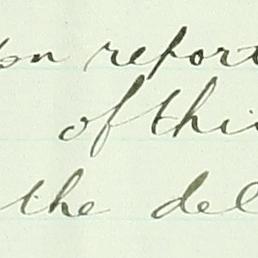 on report
of thi
the del